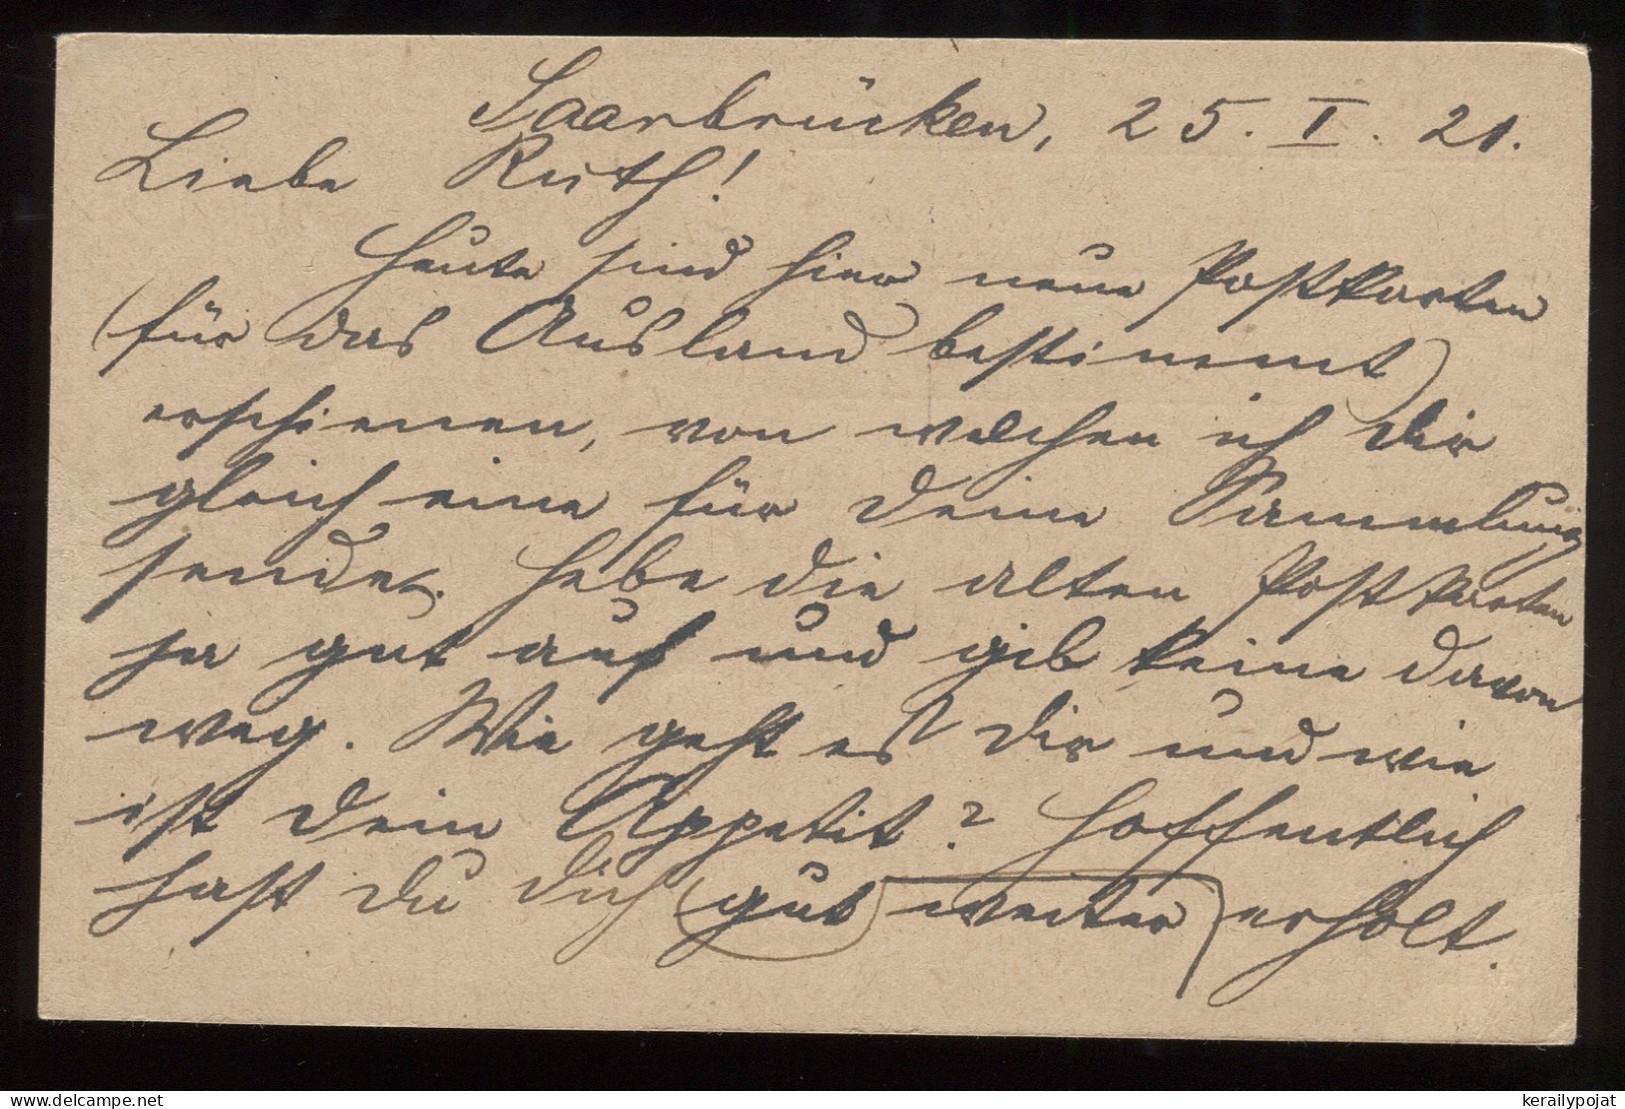 Saarbrücken, 25. I. 21.
Liebe Ruth!
Heute sind hier neue Postkarten
(für das Ausland bestimmt)
erschienen, von welchen ich dir
gleich eine für Deine Sammlung
sende. Hebe die alten Postkarten
ja gut auf und gib keine davon
weg. Wie geht es Dir und wie
ist Dein Appetit? Hoffentlich
hast Du Dich gut weiter erholt.
www.delcampe.net
kerailypojat